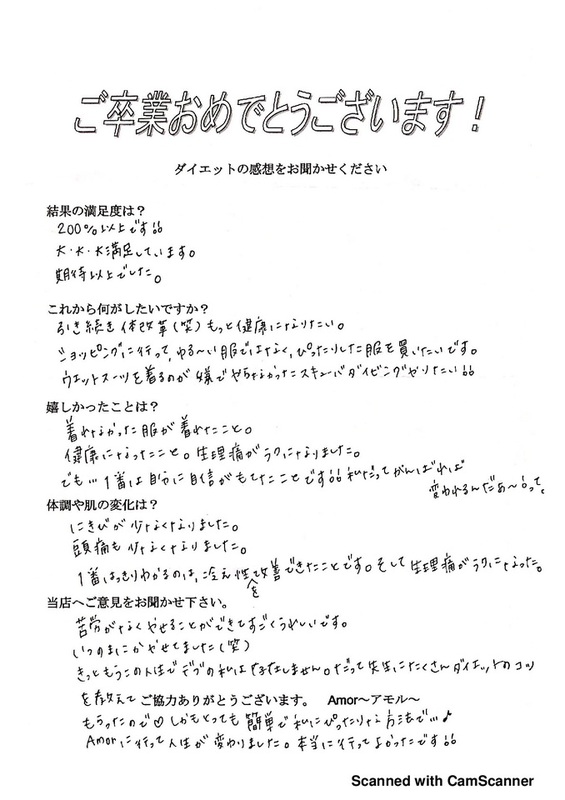 ご卒業おめでとうございます！
ダイエットの感想をお聞かせください
結果の満足度は？
200%以上です!!
大・大・大満足しています。
期待以上でした。
これから何がしたいですか？
引き続き体改革(笑)もっと健康になりたい。
ショッピングに行って、ゆる〜い服ではなく、ぴったりした服を買いたいです。
ウエットスーツを着るのが嫌でやらなかったスキューバダイビングやりたい!!
嬉しかったことは？
着れなかった服が着れたこと。
健康になったこと。生理痛がラクになりました。
でも…1番は自分に自信がもてたことです!!私だってがんばれば
変われるんだぁ〜!って。
体調や肌の変化は？
にきびが少なくなりました。
頭痛も少なくなりました。
1番はっきりわかるのは、冷え性を改善できたことです。そして生理痛がラクになった。
当店へご意見をお聞かせ下さい。
苦労がなくやせることができてすごくうれしいです。
いつのまにかやせてました(笑)
きっともうこの人生でデブの私は存在しません。だって先生にたくさんダイエットのコツ
を教えて
ご協力ありがとうございます。　Amor〜アモル〜
もらったので♡しかもとっても簡単で私にぴったりな方法で…♪
Amorに行って人生が変わりました。本当に行ってよかったです!!
Scanned with CamScanner